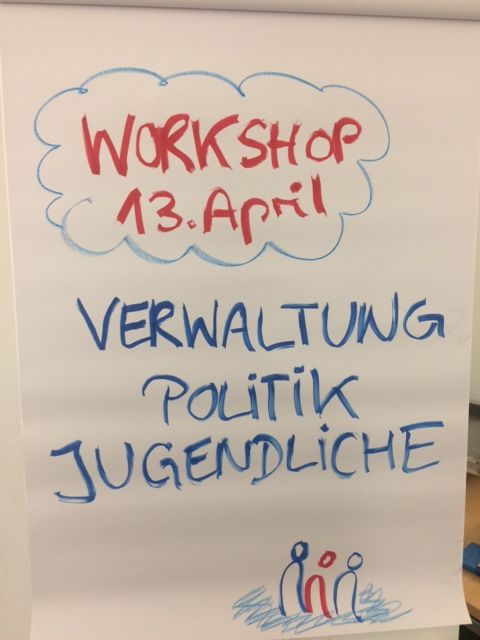 WORKSHOP
13. April
VERWALTUNG
POLiTiK
JUGENDLiCHE